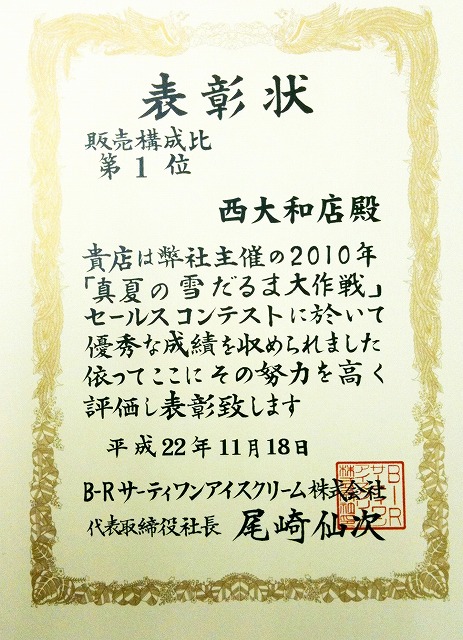 表彰状
販売構成比
第1位
西大和店殿
貴店は弊社主催の2010年
「真夏の雪だるま大作戦」
セールスコンテストに於いて
優秀な成績を収められました
依ってここにその努力を高く
評価し表彰致します
平成22年11月18日
B-Rサーティワンアイスクリーム株式会社
代表取締役社長 尾崎仙次